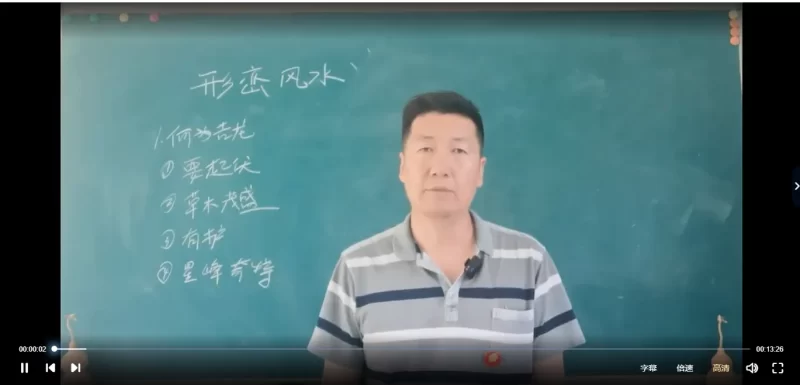 形峦风水
1.何为吉龙
①要起伏
②草木茂盛
③有护
④星峰奇特
00:00:02
00:13:26
字幕 倍速 高清